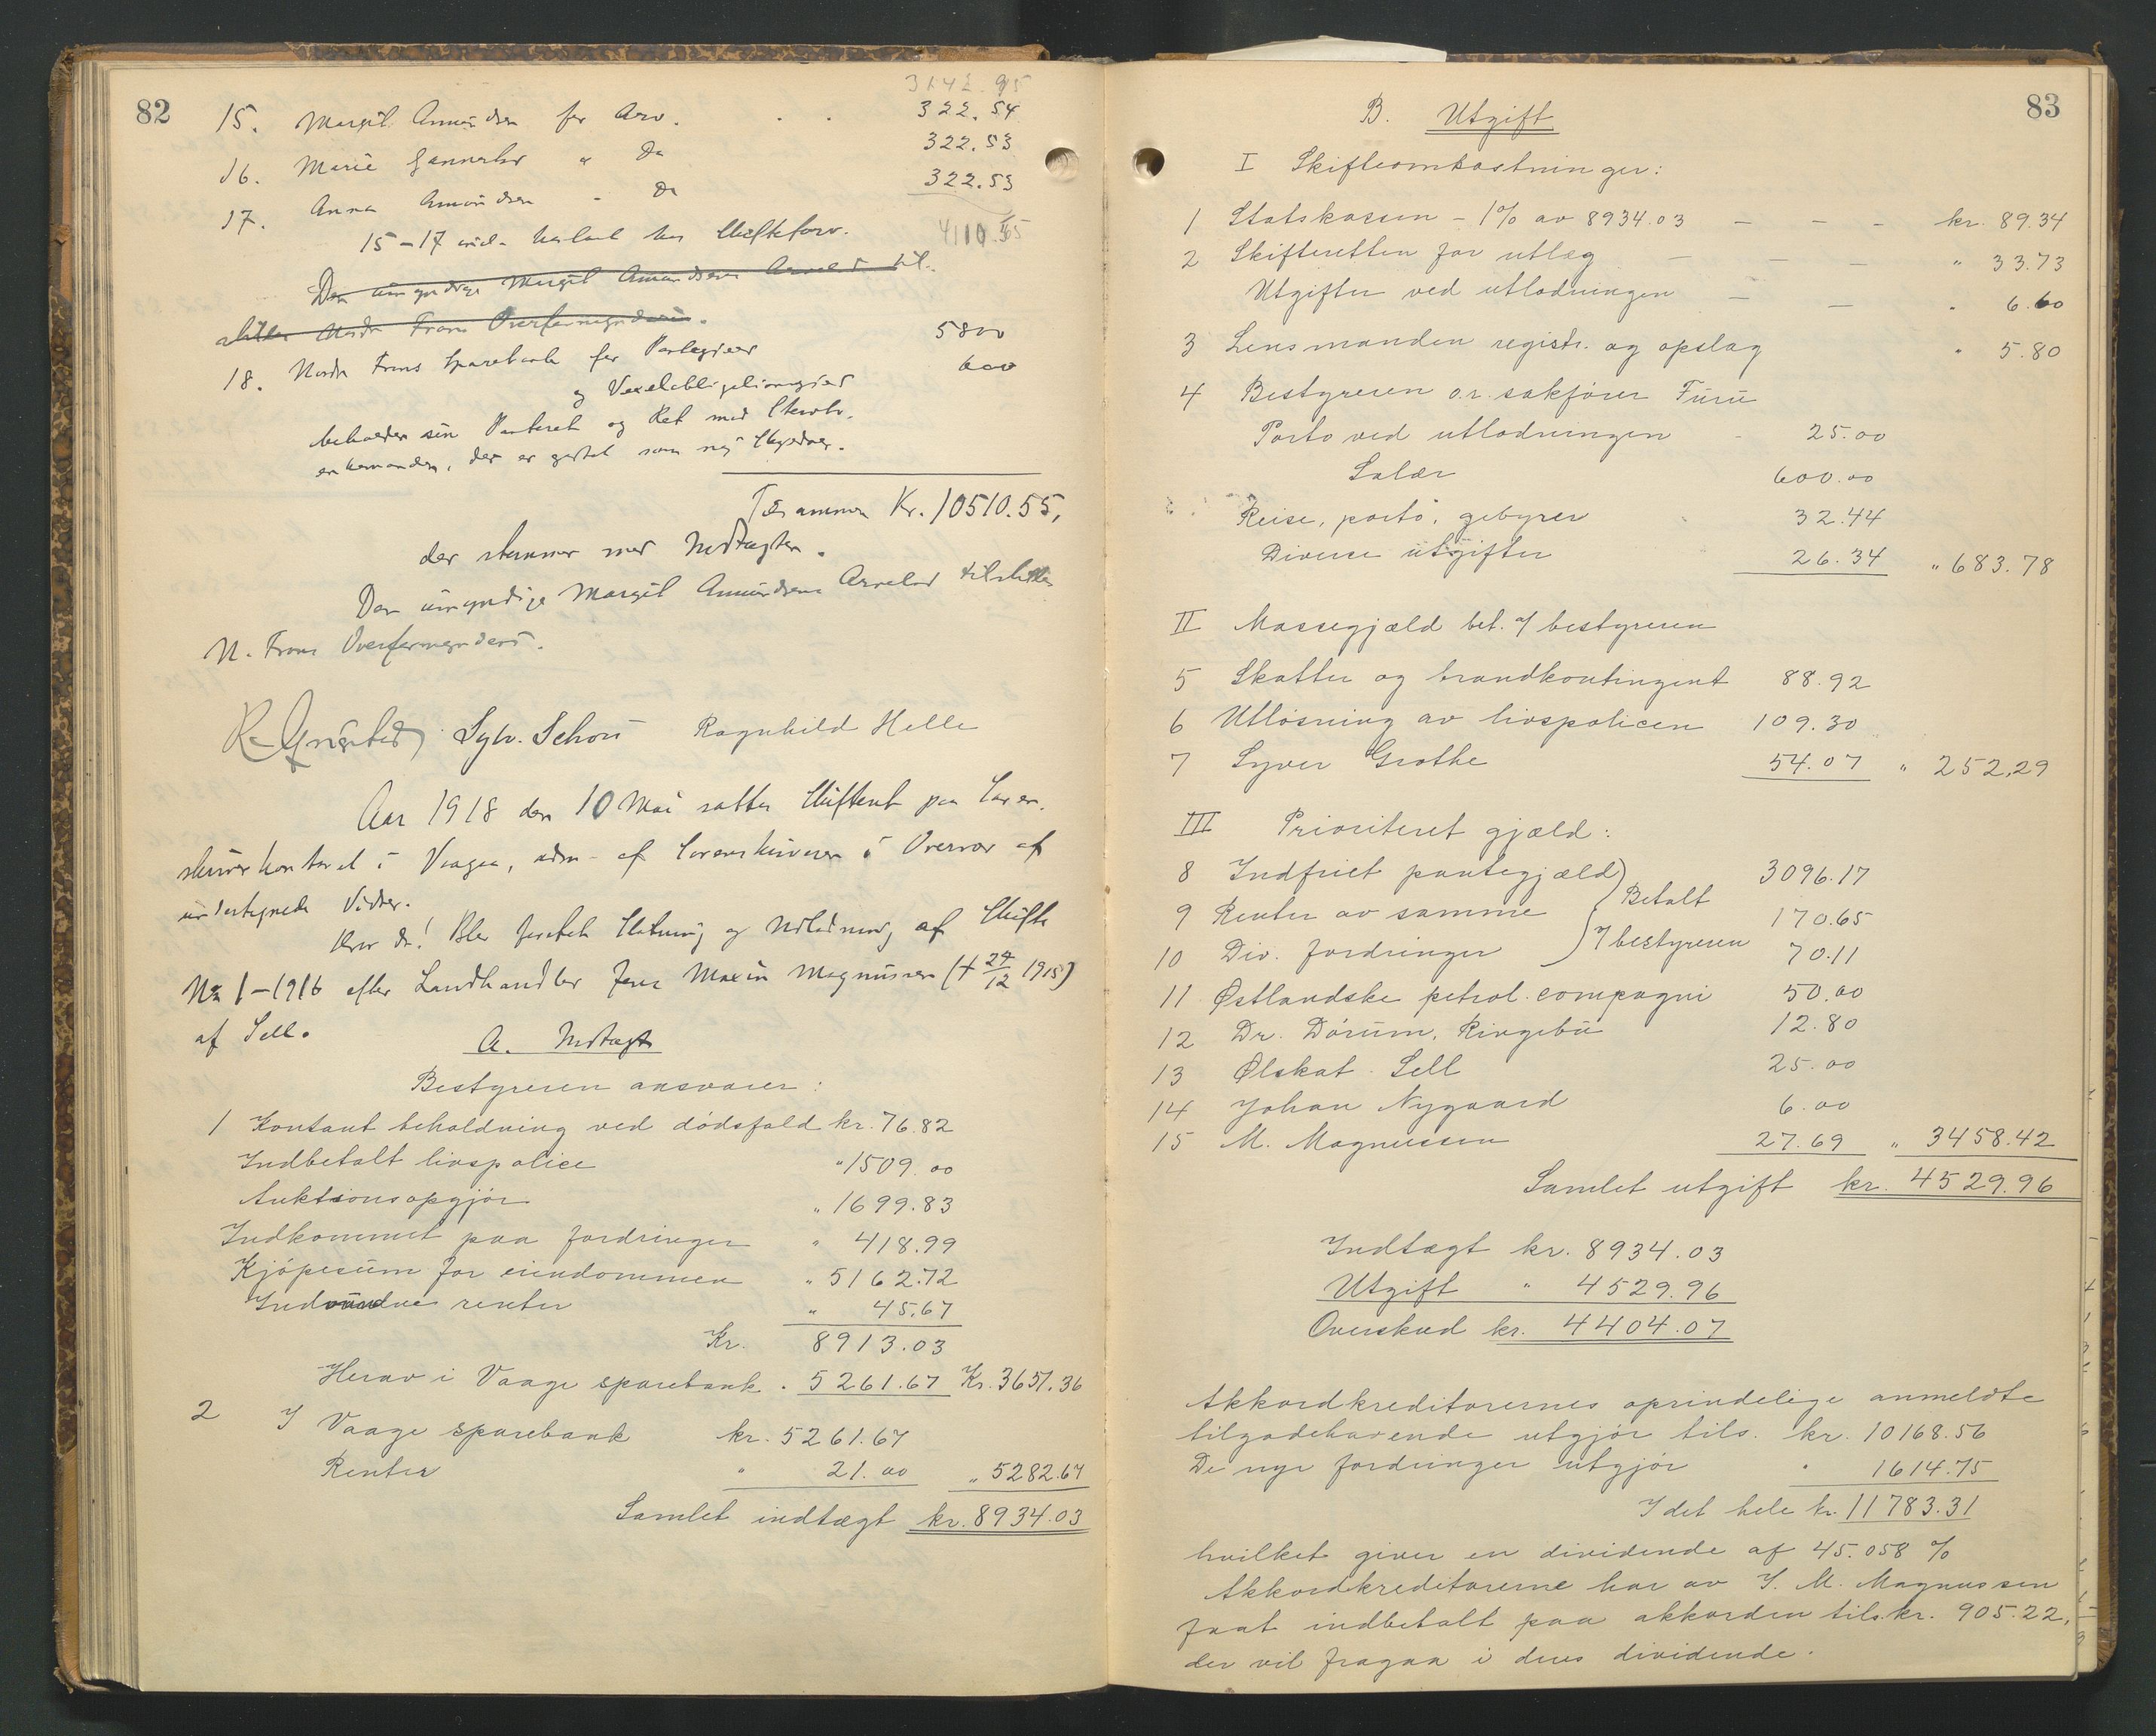 82
3142.95
15. Margit Amundsen for Arv. . . 322.54
16. Marie " Do 322.53
17. Anna Amundsen - Do 322.53
15-17 Skifteforv. 4110.55
Den umyndige Margit Amundsens Arvelod til-
Nordre Frons Overformynderi.
18. Nordre Frons Sparebank for Pantegjæld 5800
og Vexelobligationsgjæld 600
beholder sin Panteret og Ret mod
enkemanden, der er godtat som ny Skyldner.
Tilsammen Kr. 10510.55,
der stemmer med Indtægten.
Den umyndige Margit Amundsens Arvelod tilstilles
N. Frons Overformynderi.
Sylv. Schou Ragnhild Helle
Aar 1918 den 10 Mai sattes Skifteret paa Soren-
skriverkontoret i Vaagaa, adm. af Sorenskriveren i Overvær af
undertegnede Vidner.
Hvor da! Blev foretat Slutning og Utlodning af Skifte
No 1-1916 efter Landhandler Jens Maxin Magnussen (+ 24/12 1915)
af Sell.
A. Indtægt
Bestyreren ansvarer:
1 Kontant beholdning ved dödsfald kr. 76.82
Indbetalt livspolice " 1509.00
Auktionsopgjör " 1699.83
Indkommet paa fordringer " 418.99
Kjöpesum for eiendommen " 5162.72
Indvundne renter " 45.67
Kr. 8913.03
Herav i Vaage sparebank . 5261.67 Kr. 3651.36
2 I Vaage sparebank kr. 5261.67
Renter " 21.00 " 5282.67
Samlet indtægt kr. 8934.03
83
B. Utgift
I Skifteomkostninger:
1 Statskassen - 1% av 8934.03 - - - kr. 89.34
2 Skifteretten for utlæg - - - " 33.73
Utgifter ved utlodningen - - " 6.60
3 Lensmanden registr. og opslag " 5.80
4 Bestyreren o.r. sakförer Furu
Porto ved utlodningen - 25.00
Salær 600.00
Reise, porto, gebyrer 32.44
Diverse utgifter 26.34 " 683.78
II Massegjæld bet. af bestyreren
5 Skatter og brandkontingent 88.92
6 Utlösning av livspolicen 109.30
7 Syver Grothe 54.07 " 252,29
III Prioritert gjæld:
8 Indfriet pantegjæld 3096.17
9 Renter av samme } Betalt 170.65
10 Div. fordringer af bestyreren 70.11
11 Østlandske petrol. compagni 50.00
12 Dr. Dörum, Ringebu 12.80
13 Ølskat. Sell 25.00
14 Johan Nygaard 6.00
15 M. Magnussen 27.69 " 3458.42
Samlet utgift kr. 4529.96
Indtægt kr. 8934.03
Utgift " 4529.96
Overskud kr. 4404.07
Akkordkreditorernes oprindelige anmeldte
tilgodehavende utgjör tils. kr. 10168.56
De nye fordringer utgjör " 1614.75
I det hele kr. 11783.31
hvilket giver en dividende af 45.058 %
Akkordkreditorerne har av J. M. Magnussen
faat indbetalt paa akkorden tils. kr. 905.22,
der vil fragaa i deres dividende.